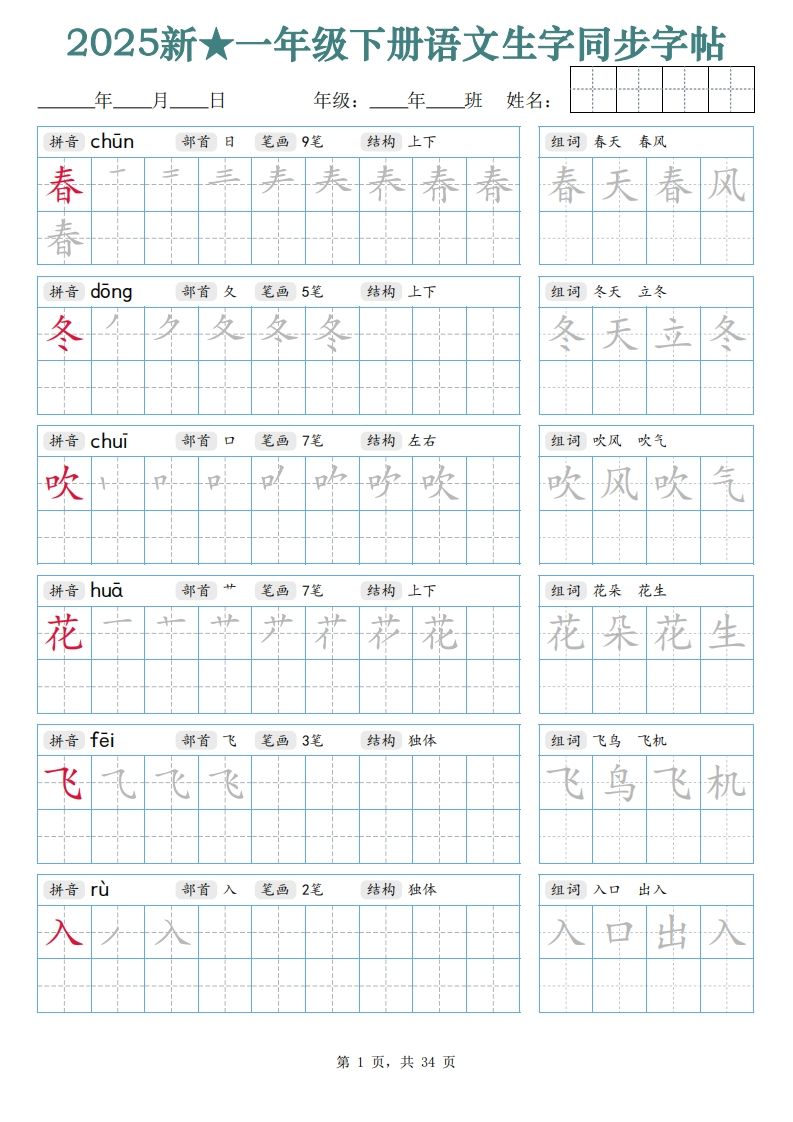 2025新★一年级下册语文生字同步字帖
______年____月____日 年级：____年____班 姓名：
拼音 chūn 部首 日 笔画 9笔 结构 上下 组词 春天 春风
春 春 天 春 风
春
拼音 dōng 部首 夂 笔画 5笔 结构 上下 组词 冬天 立冬
冬 冬 天 立 冬
拼音 chuī 部首 口 笔画 7笔 结构 左右 组词 吹风 吹气
吹 吹 风 吹 气
拼音 huā 部首 艹 笔画 7笔 结构 上下 组词 花朵 花生
花 花 朵 花 生
拼音 fēi 部首 飞 笔画 3笔 结构 独体 组词 飞鸟 飞机
飞 飞 鸟 飞 机
拼音 rù 部首 入 笔画 2笔 结构 独体 组词 入口 出入
入 入 口 出 入
第 1 页，共 34 页